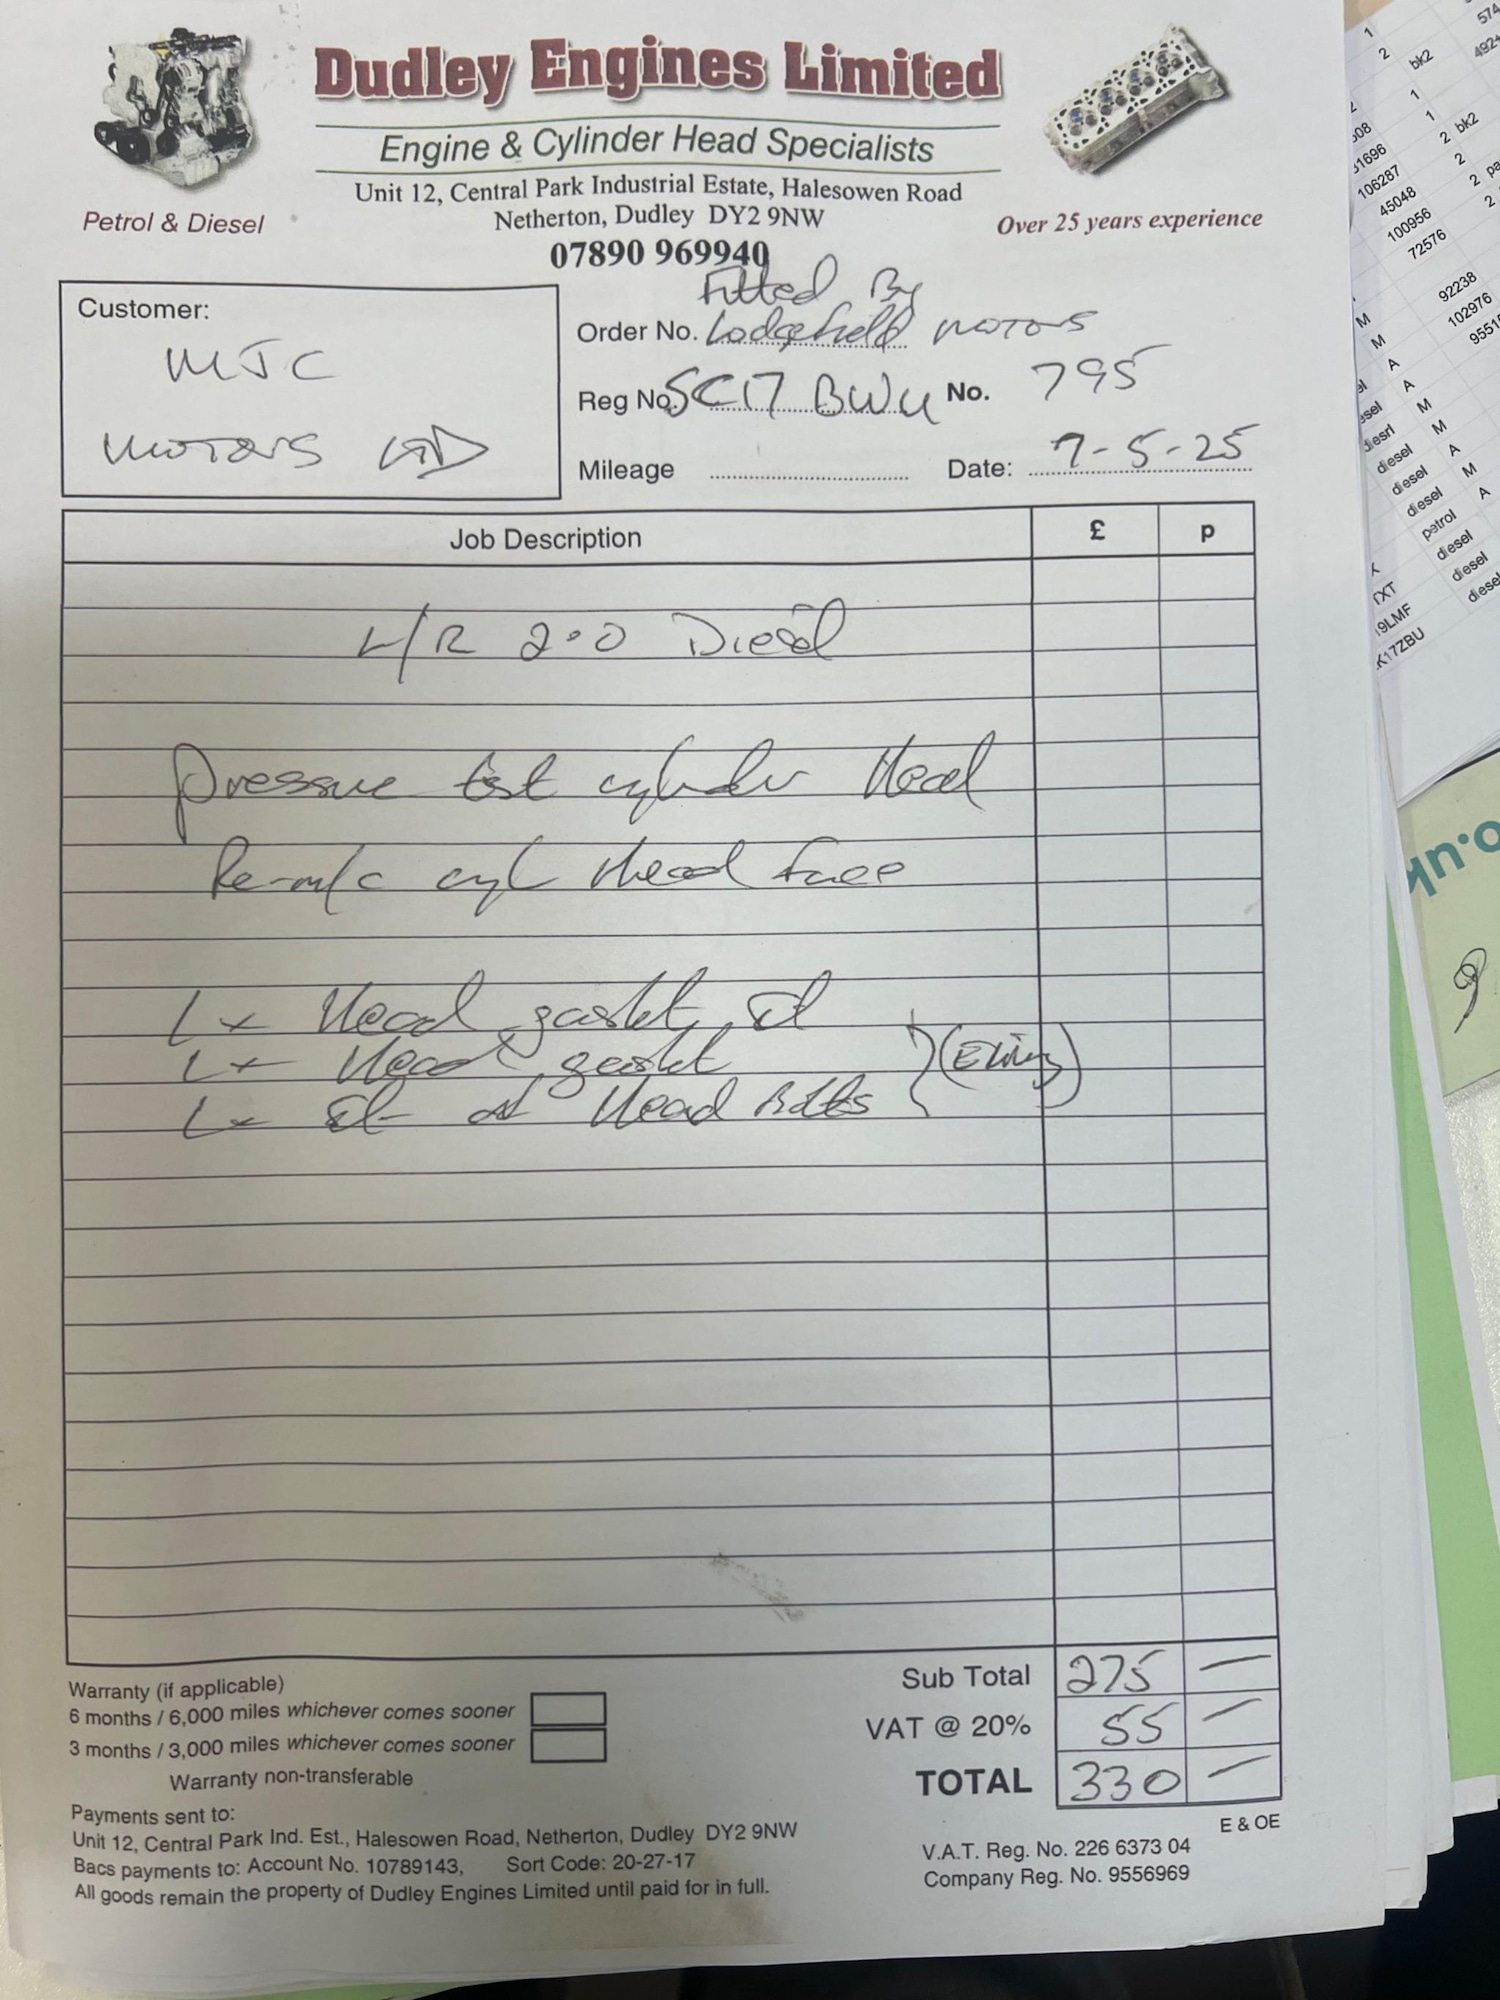 Dudley Engines Limited
Engine & Cylinder Head Specialists
Unit 12, Central Park Industrial Estate, Halesowen Road
Netherton, Dudley DY2 9NW
07890 969940
Petrol & Diesel
Over 25 years experience
Customer:
MJC
MOTORS LTD
Fitted By
Order No. Lodgefield MOTORS
Reg No. SC17 BWU No. 795
Mileage Date: 7-5-25
Job Description £ p
L/R 2.0 Diesel
Pressure test cylinder Head
Re-m/c cyl Head face
1x Head gasket set
1x Head gasket
1x set of Head Bolts
(Elring)
Sub Total 275 —
VAT @ 20% 55 —
TOTAL 330 —
Warranty (if applicable)
6 months / 6,000 miles whichever comes sooner
3 months / 3,000 miles whichever comes sooner
Warranty non-transferable
Payments sent to:
Unit 12, Central Park Ind. Est., Halesowen Road, Netherton, Dudley DY2 9NW
Bacs payments to: Account No. 10789143, Sort Code: 20-27-17
All goods remain the property of Dudley Engines Limited until paid for in full.
E & OE
V.A.T. Reg. No. 226 6373 04
Company Reg. No. 9556969
1
2 bk2
1
1
2 bk2
2
106287
45048
100956
72576
92238
102976
M
M
A
A
M
diesel M
diesel A
diesel M
petrol A
diesel
diesel
diesel
o.uk